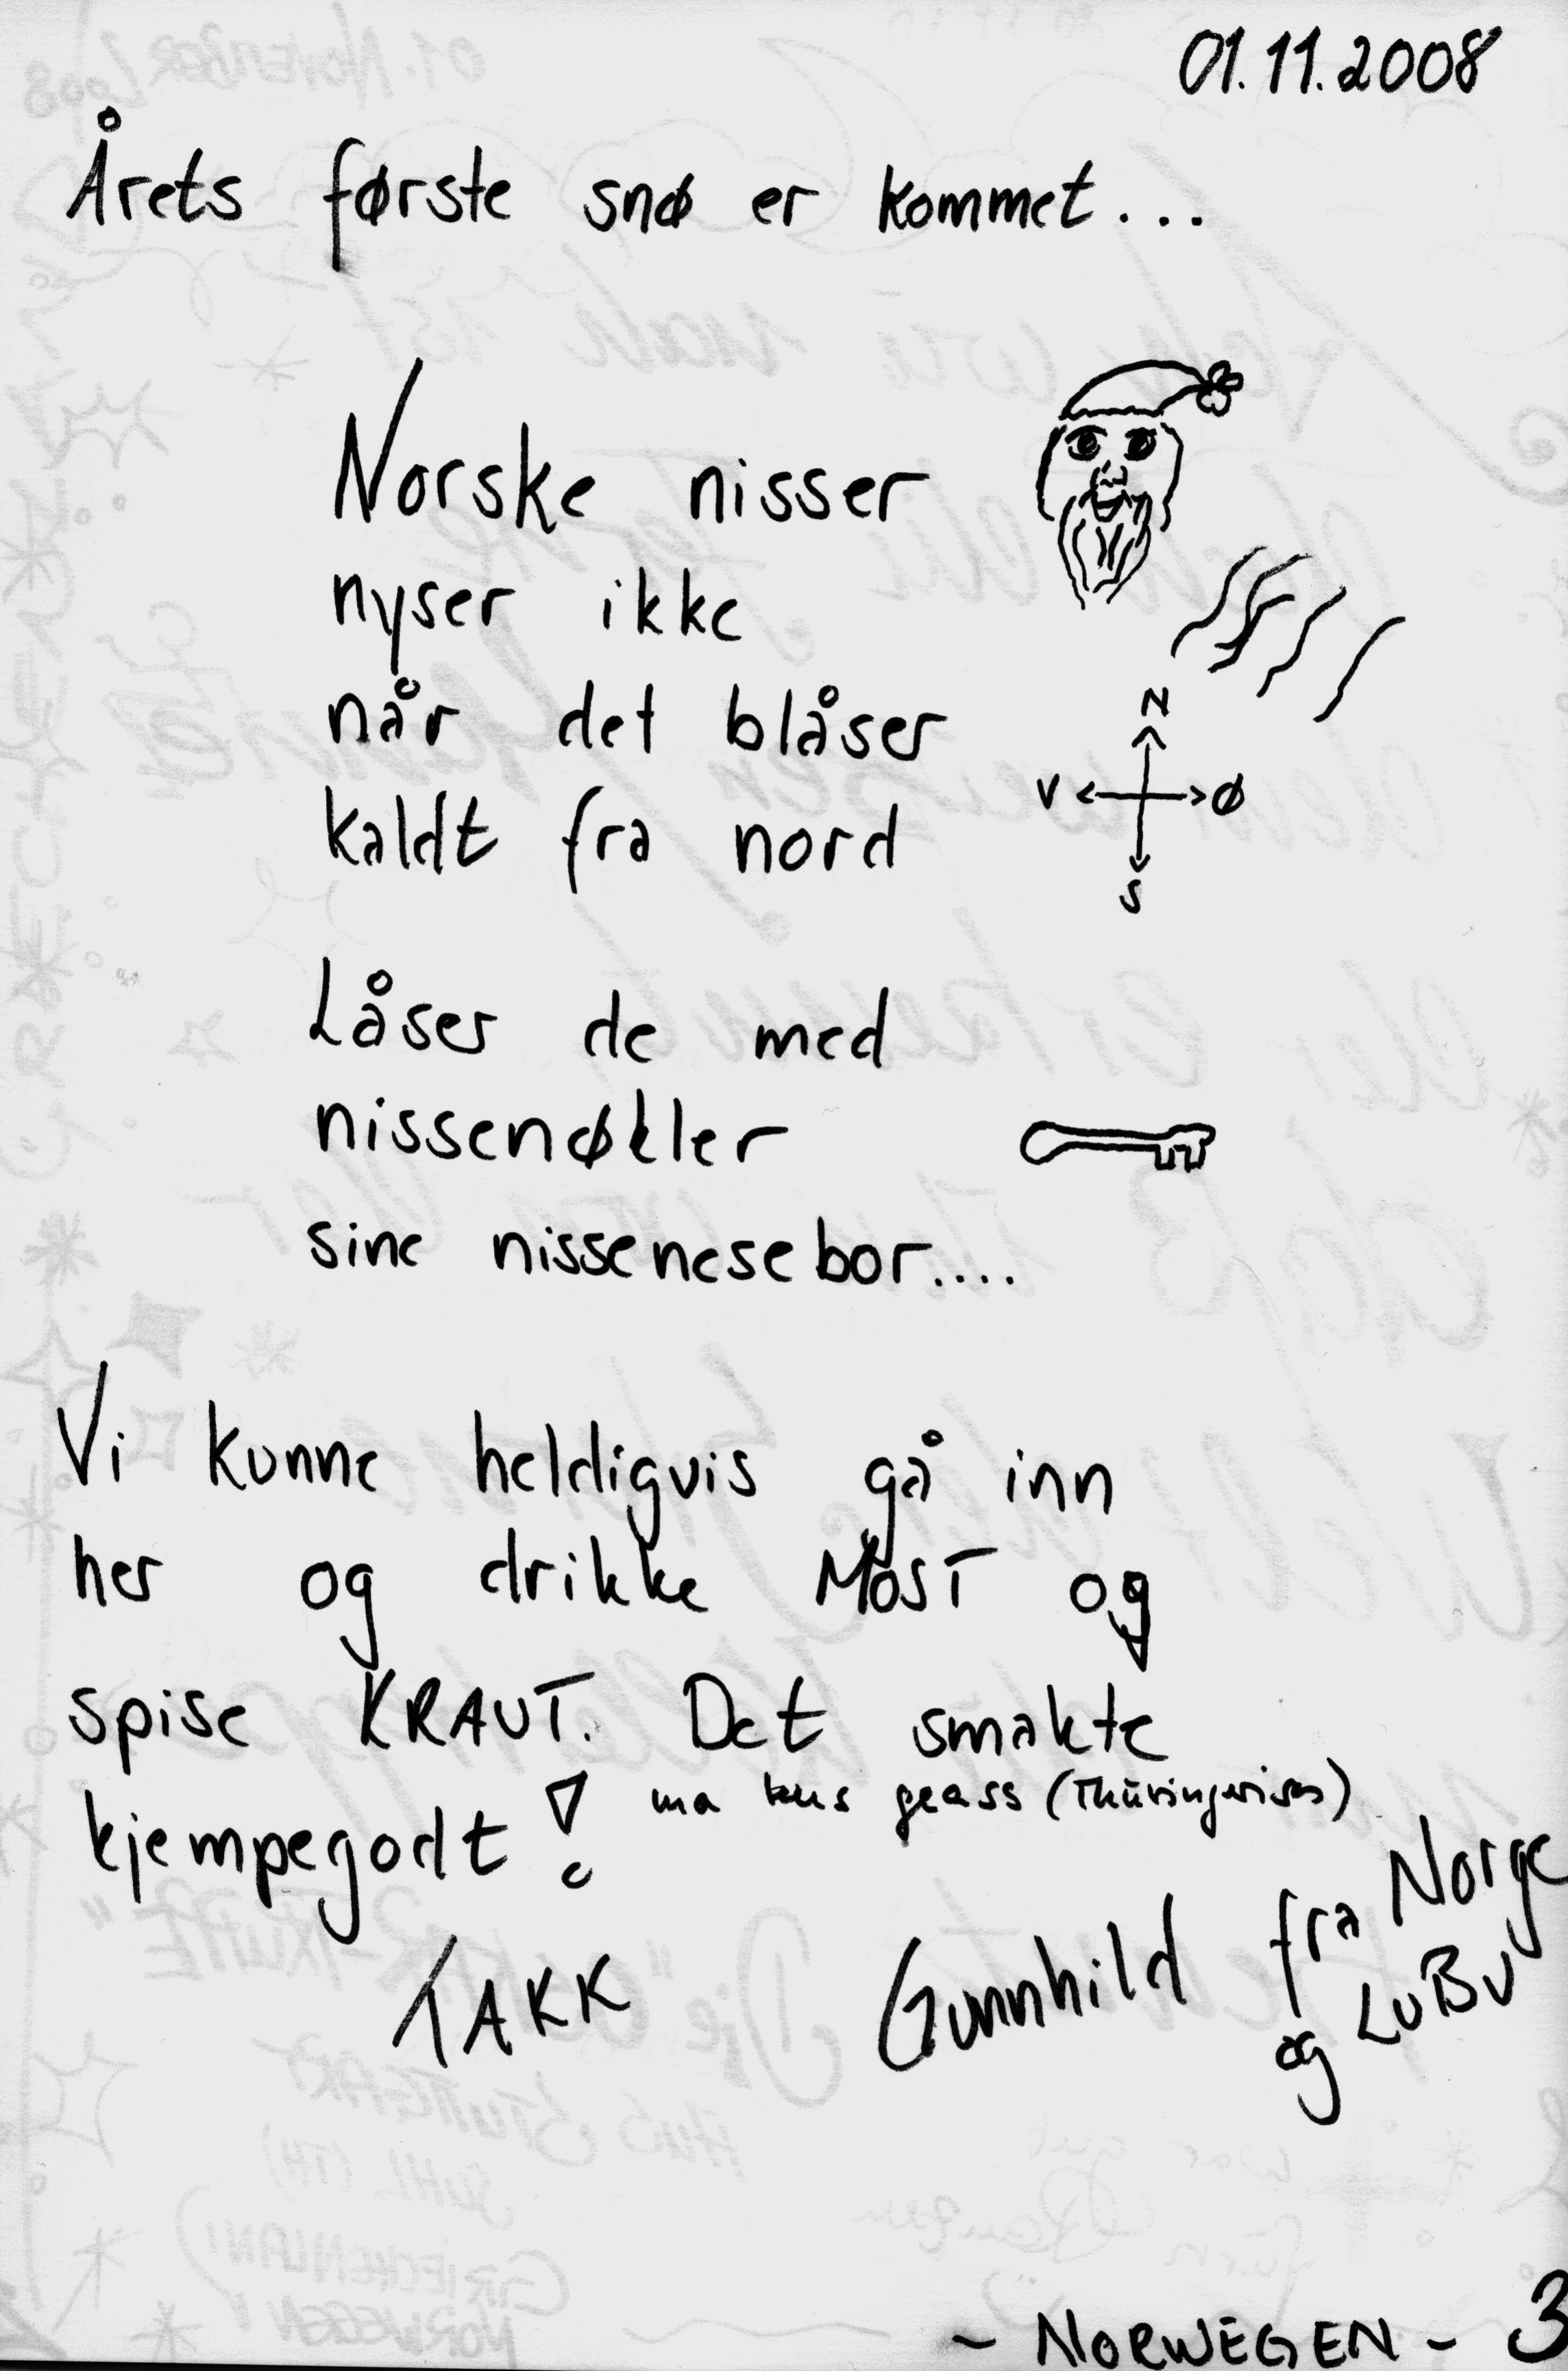 01.11.2008
Årets første snø er kommet...
Norske nisser
nyser ikke
når det blåser
kaldt fra nord
N
V Ø
S
Låser de med
nissenøkler
sine nissenesebor....
Vi kunne heldigvis gå inn
her og drikke MOST og
spise KRAUT. Det smakte
kjempegodt!
ma geass (Thüringerisch)
TAKK Gunnhild fra Norge
og LUBU
- NORWEGEN - 3